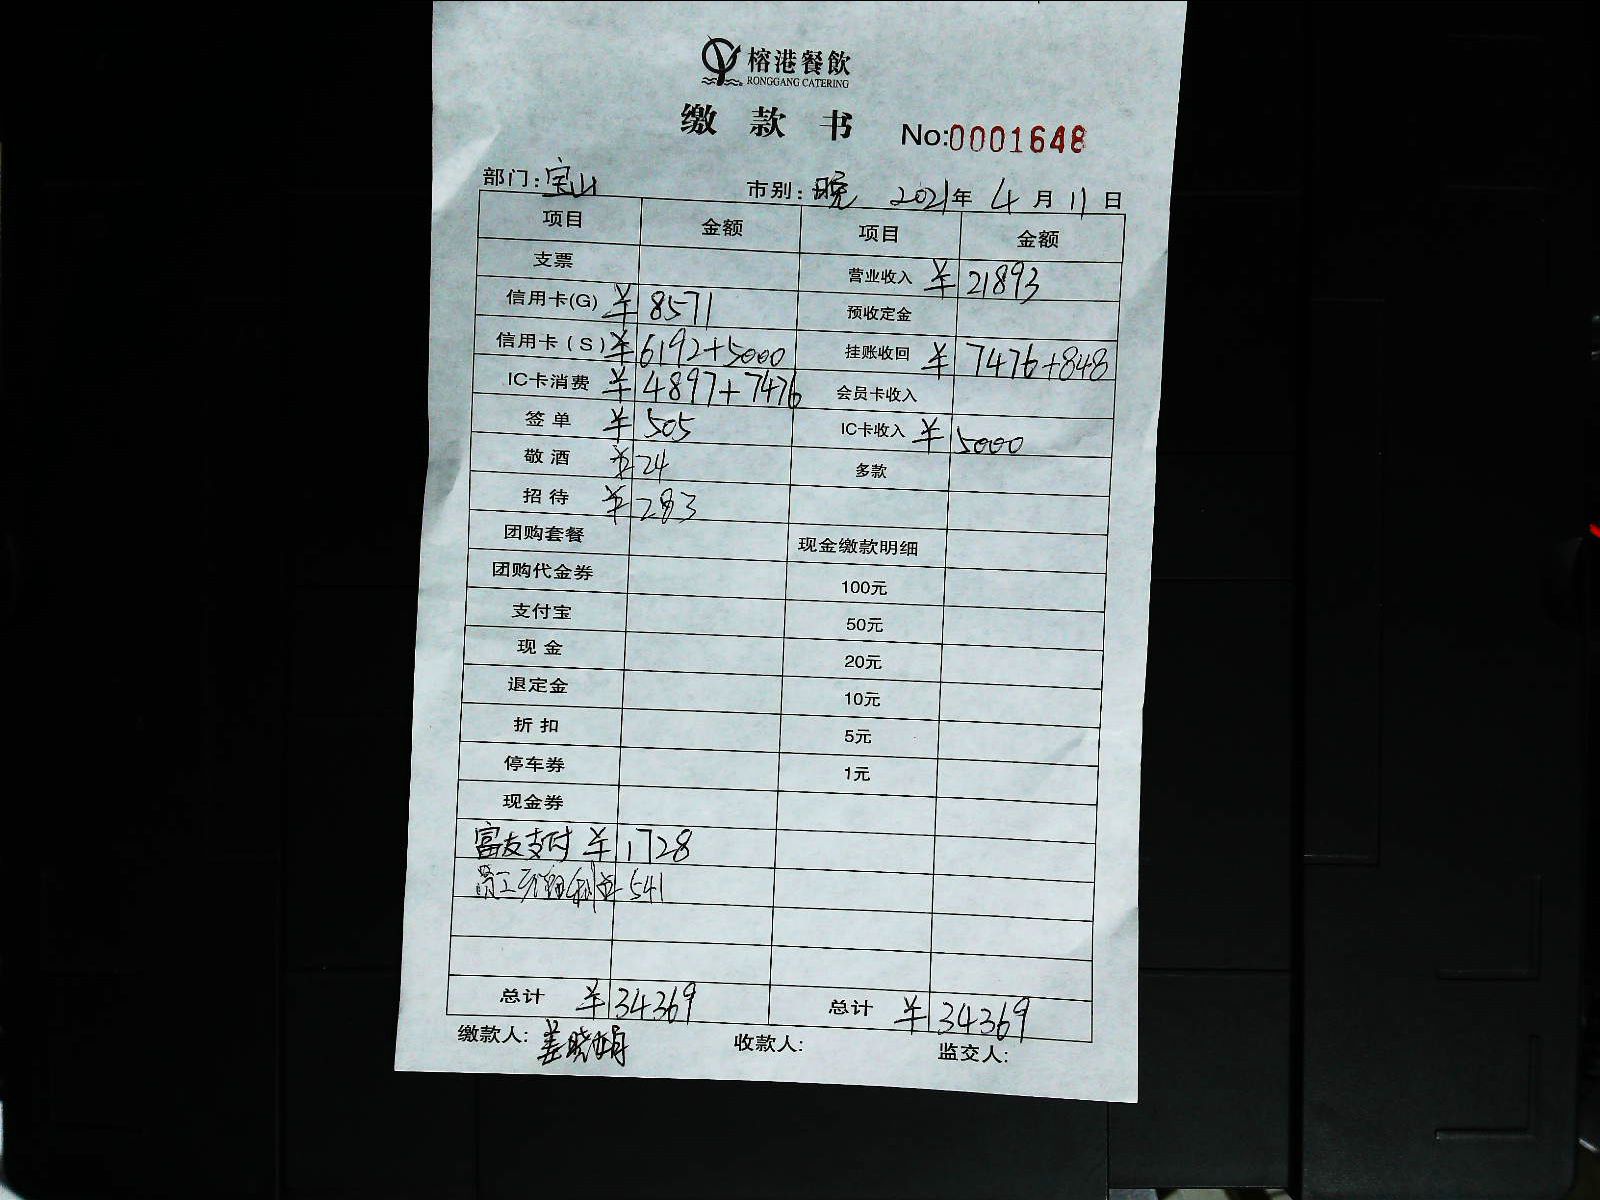 榕港餐飲
RONGGANG CATERING
缴款书 No:0001648
部门:宝山 市别:晚 2021年4月11日
项目 金额 项目 金额
支票 营业收入 ¥21893
信用卡(G) ¥8571 预收定金
信用卡(S) ¥6192+5000 挂账收回 ¥7476+848
IC卡消费 ¥4897+7476 会员卡收入
签单 ¥505 IC卡收入 ¥5000
敬酒 ¥24 多款
招待 ¥283
团购套餐 现金缴款明细
团购代金券 100元
支付宝 50元
现金 20元
退定金 10元
折扣 5元
停车券 1元
现金券
富友支付 ¥1728
员工 ¥541
总计 ¥34369 总计 ¥34369
缴款人:姜晓娟 收款人: 监交人: